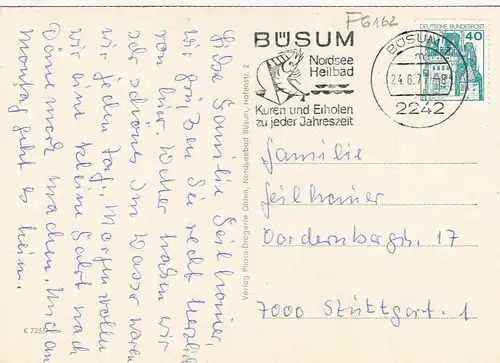 Liebe Familie Geilheimer,
wir grüßen Sie recht herzlich
von hier. Wetter haben wir
sehr schönes. Im Wasser waren
wir jeden Tag. Morgen wollen
wir eine kleine Fahrt nach
Dänemark machen. Und am
Montag geht es heim.
K 7255
Verlag Photo-Drogerie Ohlen, Nordseebad Büsum, Hafenstr. 2
FG162
BÜSUM
Nordsee
Heilbad
Kuren und Erholen
zu jeder Jahreszeit
BÜSUM
24.6.7
2242
DEUTSCHE BUNDESPOST
40
Familie
Geilheimer
17
7000 Stuttgart. 1